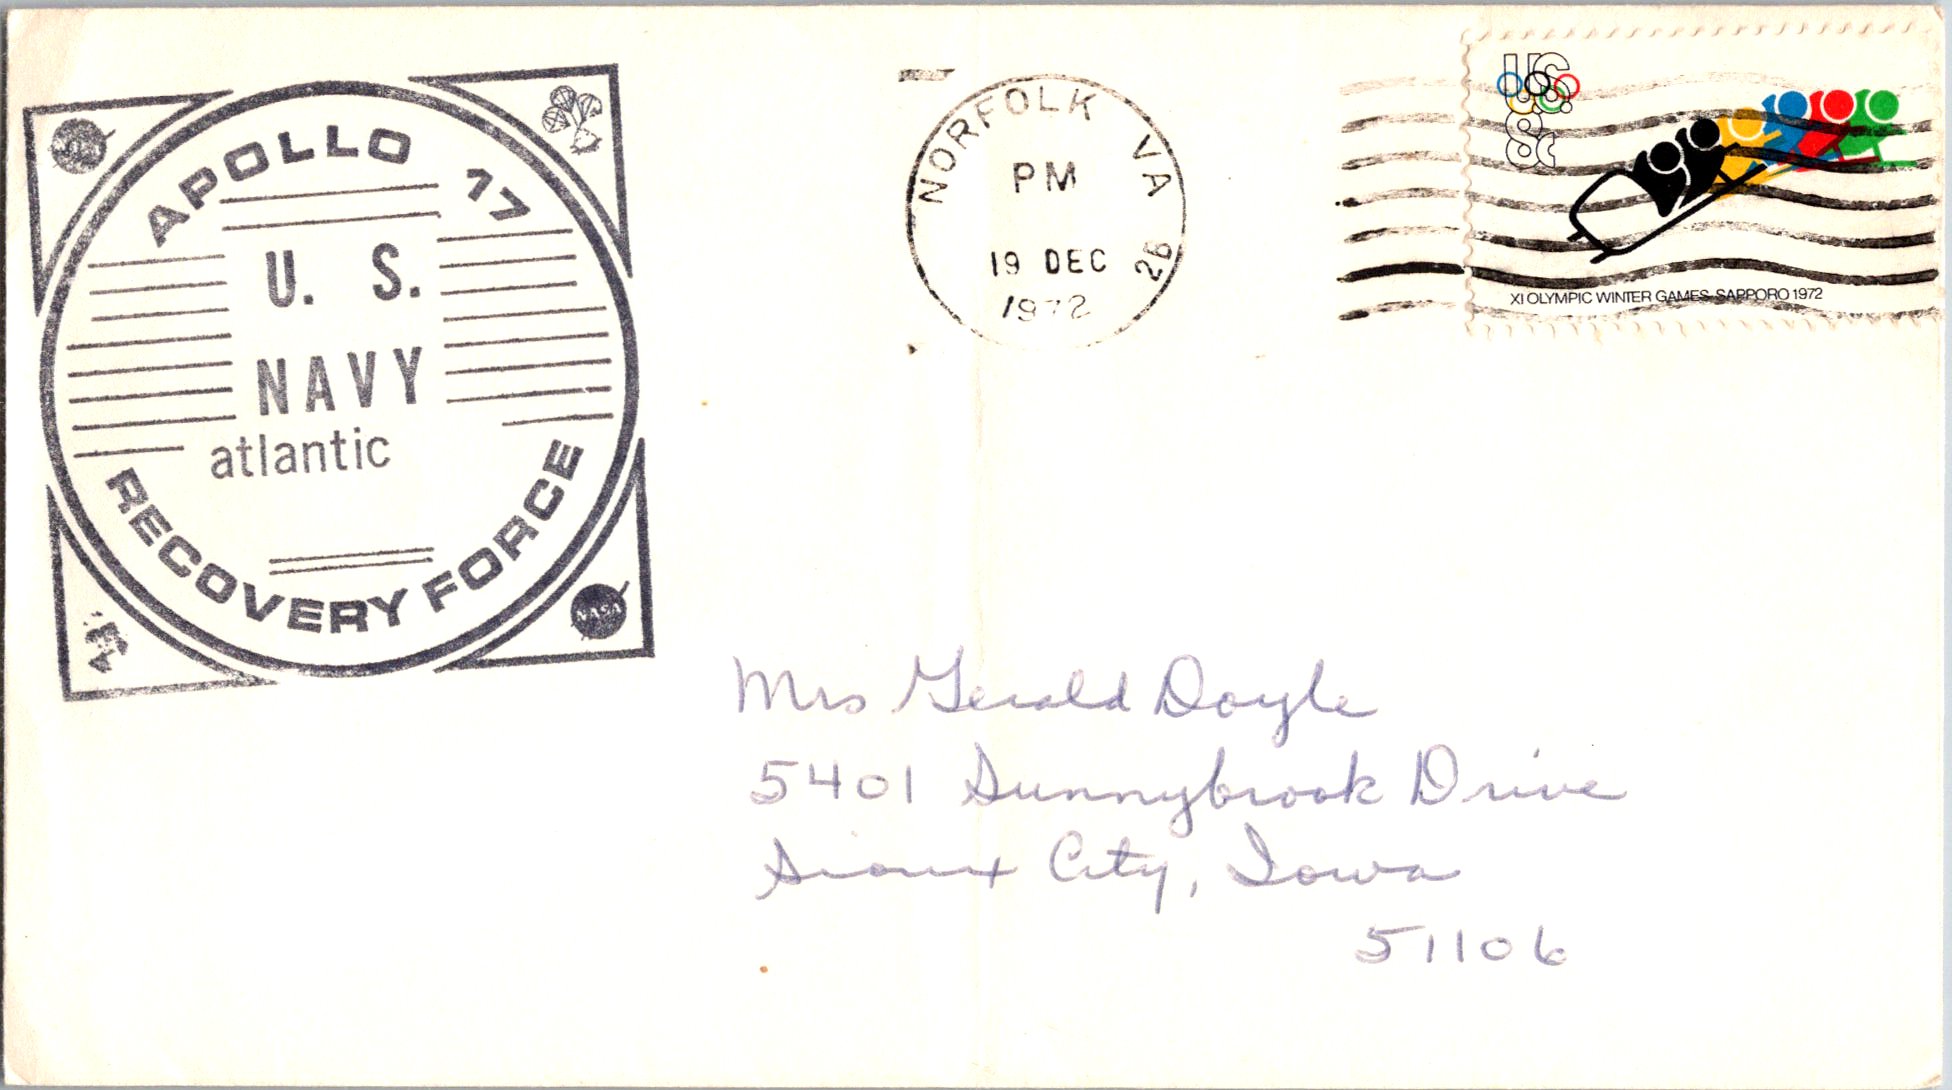 APOLLO 17
U. S.
NAVY
atlantic
RECOVERY FORCE
NASA
NORFOLK VA
PM
19 DEC
1972
U.S.
8c
XI OLYMPIC WINTER GAMES SAPPORO 1972
Mrs Gerald Doyle
5401 Sunnybrook Drive
Sioux City, Iowa
51106